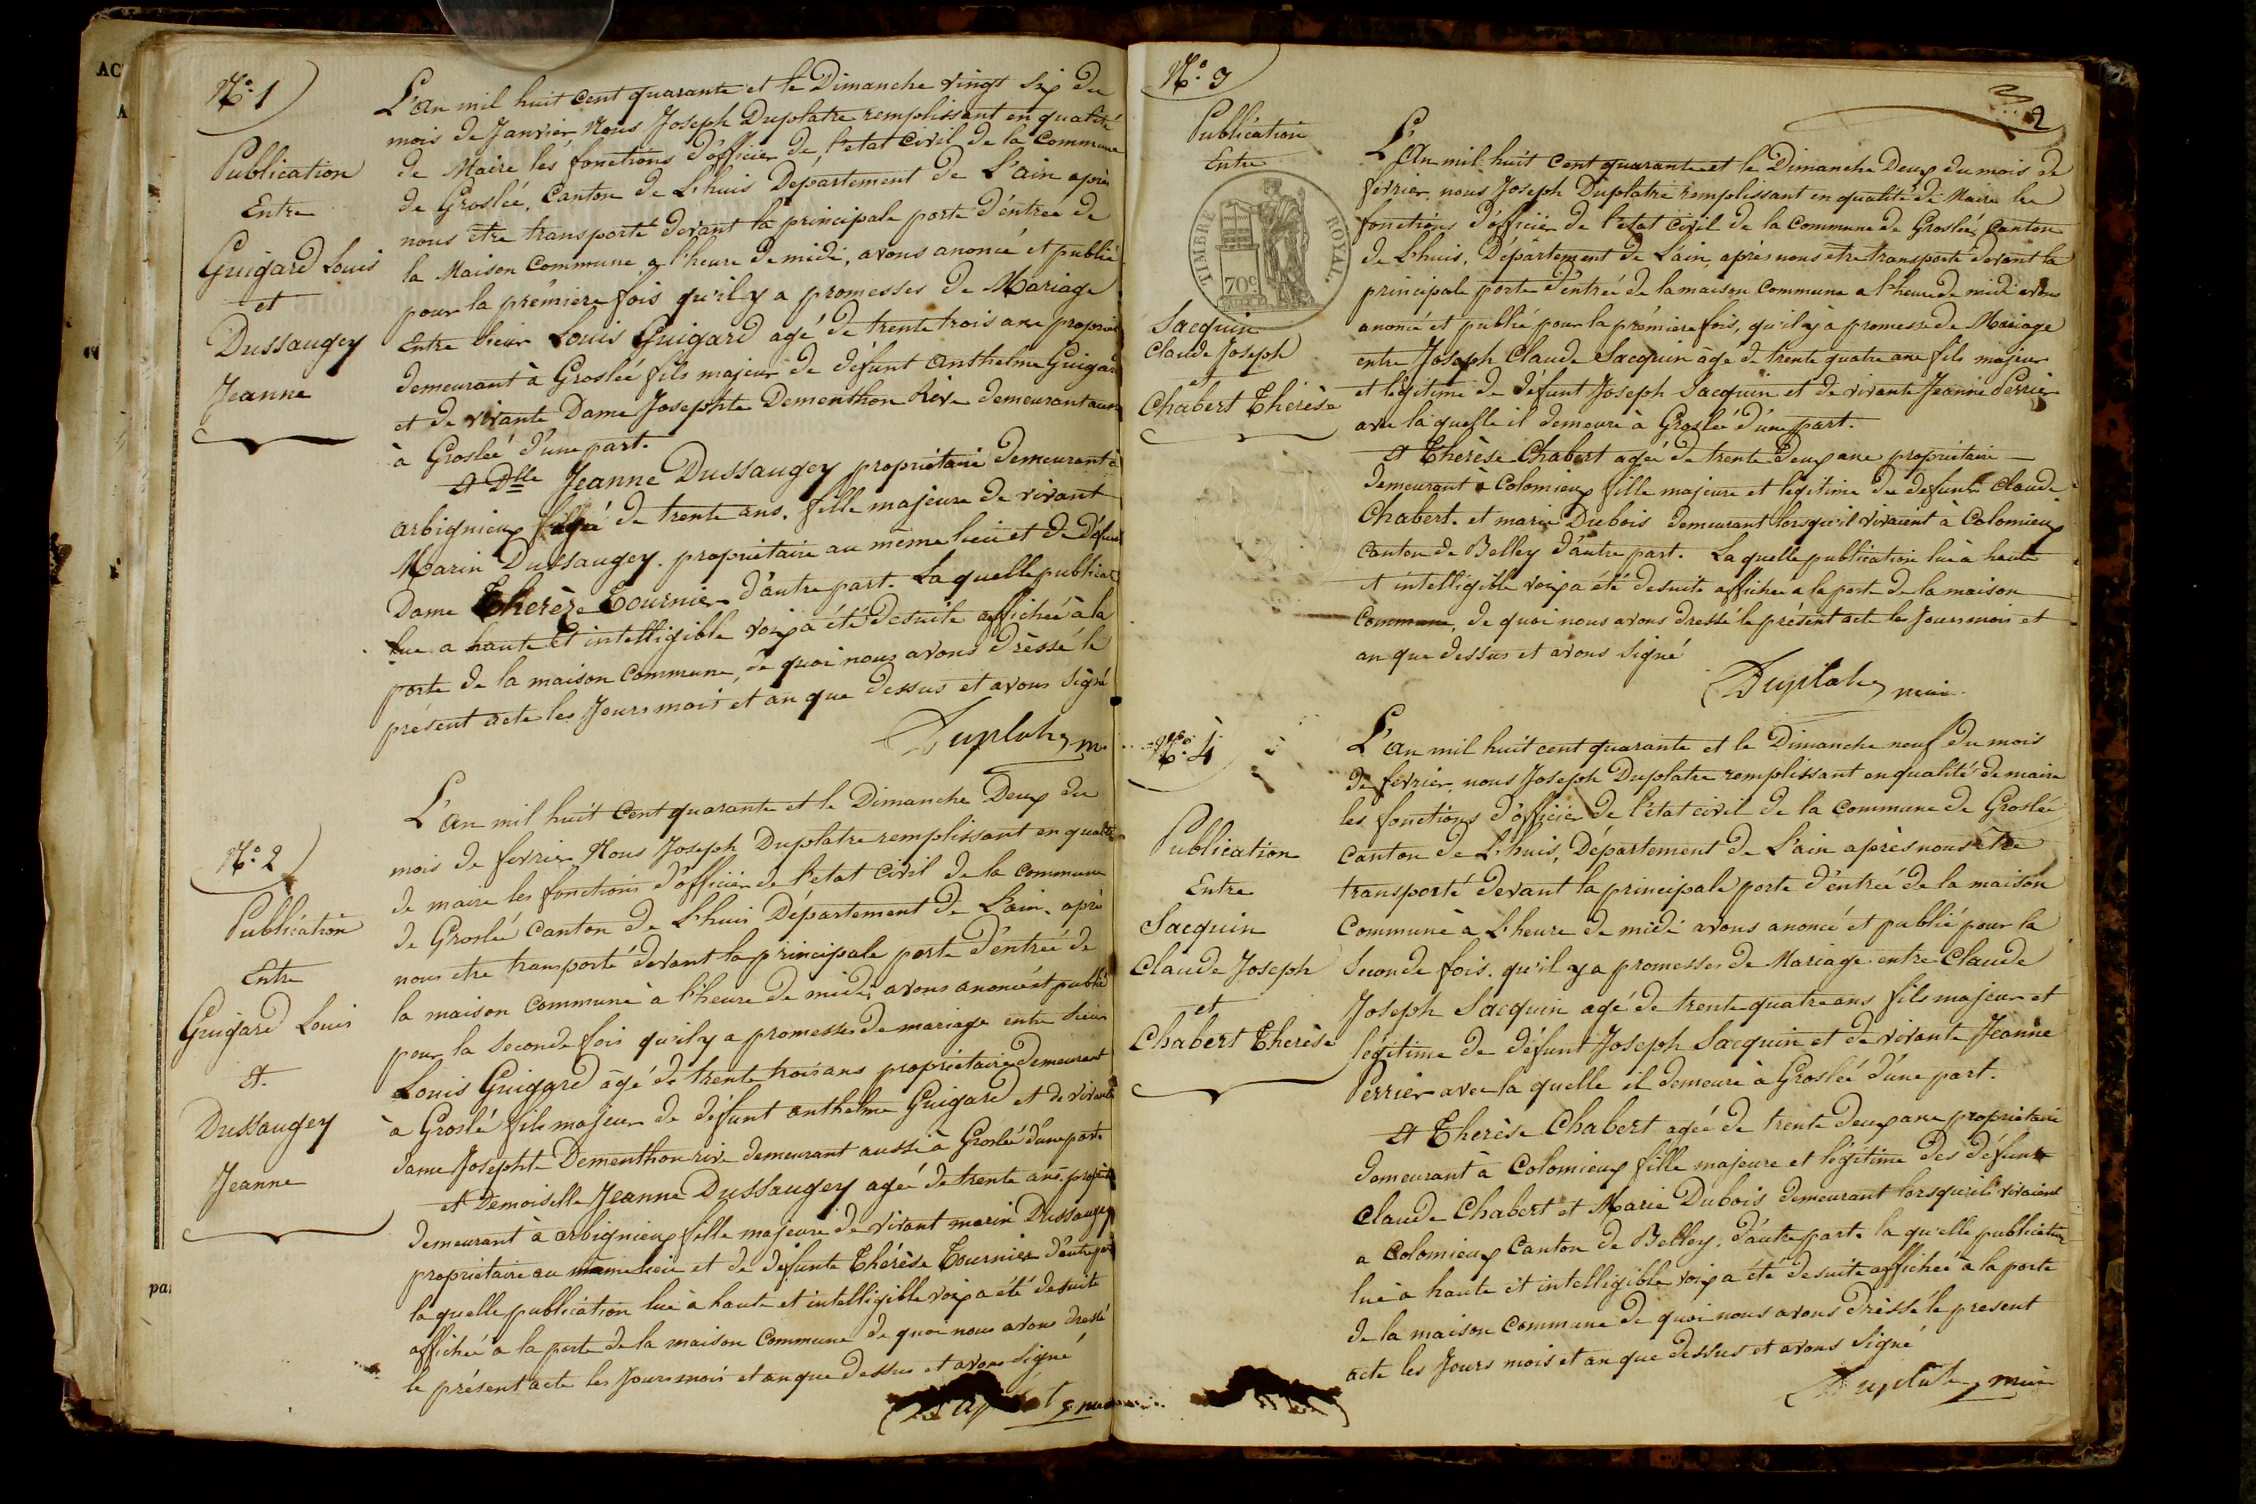 AC
A
pa
N.º 1
Publication
Entre
Guigard Louis
et
Dussaugey
Jeanne
L'an mil huit cent quarante et le Dimanche vingt Six du
mois de Janvier, Nous Joseph Duplatre remplissant en qualité
de Maire les fonctions d'officier de l'etat Civil de la Commune
de Groslée, Canton de Lhuis Département de L'ain après
nous être transporté devant la principale porte d'éntreé de
la Maison Commune a l'heure de midi, avons anoncé et publié
pour la prémiere fois qu'il y a promesses de Mariage
Entre Sieur Louis Guigard agé de trente trois ans propriét
demeurant à Groslée fils majeur de défunt Anthelme Guigard
et de vivante Dame Josephte Dementhon Rive demeurant aussi
à Groslée d'une part.
Et Dlle Jeanne Dussaugey propriétaire demeurant à
arbignieux agée de trente ans. fille majeure de vivant
Marin Dussaugey. propriétaire au même lieu et de Défunte
Dame Therèze Tournier d'autre part. La quelle publicat
lue a haute et intelligible voix a été desuite affichée à la
porte de la maison Commune, de quoi nous avons drèssé le
présent acte les Jours mois et an que dessus et avons Signé
Duplatre m
N.º 2
Publication
Entre
Guigard Louis
et.
Dussaugey
Jeanne
L'an mil huit cent quarante et le Dimanche Deux du
mois de fevrier Nous Joseph Duplatre remplissant en qualité
de maire les fonctions d'officier de l'etat Civil de la Commune
de Groslée Canton de Lhuis Département de L'ain, après
nous etre transporté devant la principale porte d'entreé de
la maison commune à l'heure de midi, avons anoncé et publié
pour la Seconde fois qu'il y a promesses de mariage entre Sieur
Louis Guigard âgé de trente trois ans propriétaire demeurant
à Groslé fils majeur de défunt anthelme Guigard et de vivante
dame Josephte Dementhon rive demeurant aussi à Groslée d'une part
et Demoiselle Jeanne Dussaugey agée de trente ans propriét
demeurant à arbignieux fille majeure de vivant marin Dussaugey
propriétaire au même lieu et de défunte Thérèse Tournier d'autre part
la quelle publication lue à haute et intelligible voix a été desuite
affichée a la porte de la maison Commune de quoi nous avons dressé
le présent acte les Jours mois et an que dessus et avons Signé
N.º 3
2
Publication
Entre
TIMBRE ROYAL.
70c
Sacquin
Claude Joseph
et
Chabert Thérèse
L'An mil huit cent quarante et le Dimanche Deux du mois de
fevrier, nous Joseph Duplatre remplissant en qualité de Maire les
fonctions d'officier de l'etat civil de la commune de Groslée, Canton
de Lhuis, Département de L'ain, après nous etre transporté devant la
principale porte d'éntrée de la maison Commune a l'heure de midi avons
anoncé et publié pour la prémiere fois, qu'il y a promesse de Mariage
entre Joseph Claude Sacquin âge de trente quatre ans fils majeur
et légitime de défunt Joseph Sacquin et de vivante Jeanne Perrier
avec la quelle il demeure à Groslée d'une part.
Et Thérèse Chabert agée de trente Deux ans propriétaire
demeurant à Colomieux fille majeure et legitime de defunt Claude
Chabert. et marie Dubois demeurant lorsqu'il vivaient à Colomieux
canton de Belley d'autre part. La quelle publication lue à haute
et intelligible voix a été desuite affichée a la porte de la maison
Commune, de quoi nous avons dressé le présent acte les Jours mois et
an que dessus et avons Signé
Duplatre maire
N.º 4
Publication
Entre
Sacquin
Claude Joseph
et
Chabert Therèse
L'an mil huit cent quarante et le Dimanche neuf du mois
de fevrier, nous Joseph Duplatre remplissant en qualité de maire
les fonctions d'officier de l'état civil de la commune de Groslée
canton de Lhuis, Département de L'ain après nous être
transporté devant la principale porte d'éntrée de la maison
Commune à L'heure de midi avons anoncé et publié pour la
Seconde fois. qu'il y a promesses de Mariage entre Claude
Joseph Sacquin agé de trente quatre ans fils majeur et
légitime de défunt Joseph Sacquin et de vivante Jeanne
Perrier avec la quelle il demeure à Groslée d'une part.
et Therèse Chabert agée de trente deux ans propriétaire
demeurant à Colomieux fille majeure et légitime des défunt
Claude Chabert et Marie Dubois demeurant lorsqu'ils vivaient
a Colomieux Canton de Belley, d'autre part. la qu'elle publication
lue à haute et intelligible voix a été desuite affichée a la porte
de la maison Commune de quoi nous avons drèssé le present
acte les Jours mois et an que dessus et avons Signé
Duplatre maire